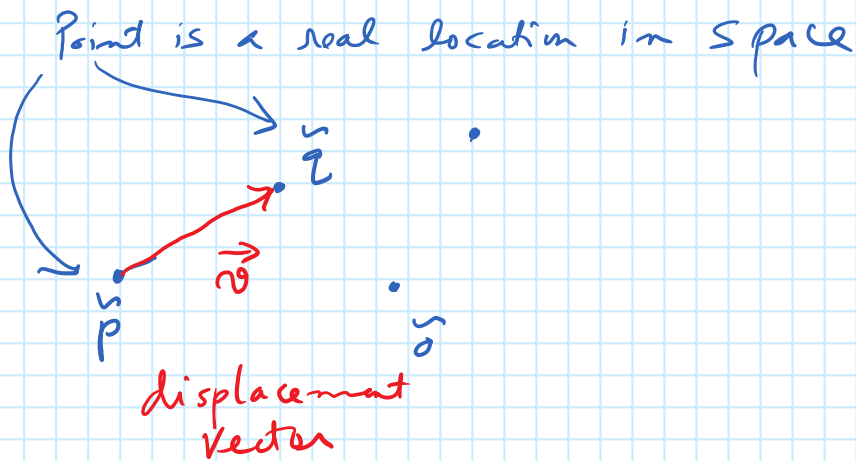 Point is a real location in space
q̃
v⃗
p̃
õ
displacement
vector